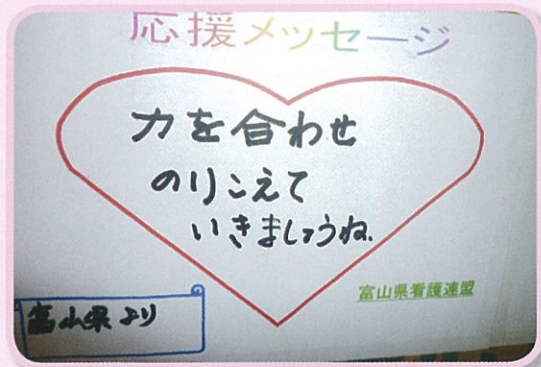 応援メッセージ
力を合わせ
のりこえて
いきましょうね.
富山県看護連盟
富山県より